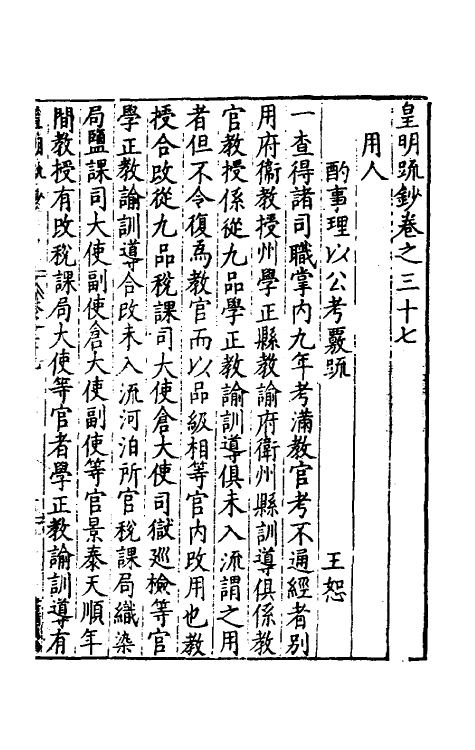 皇明疏鈔卷之三十七
用人
酌事理以公考覈疏　王恕
一查得諸司職掌內九年考滿教官考不通經者別
用府衞教授州學正縣教諭府衛州縣訓導俱係教
官教授係從九品學正教諭訓導俱未入流謂之用
者但不令復爲教官而以品級相等官內改用也教
授合改從九品稅課司大使倉大使司獄巡檢等官
學正教諭訓導合改未入流河泊所官稅課局織染
局鹽課司大使副使倉大使副使等官景泰天順年
間教授有改稅課局大使等官者學正教諭訓導有